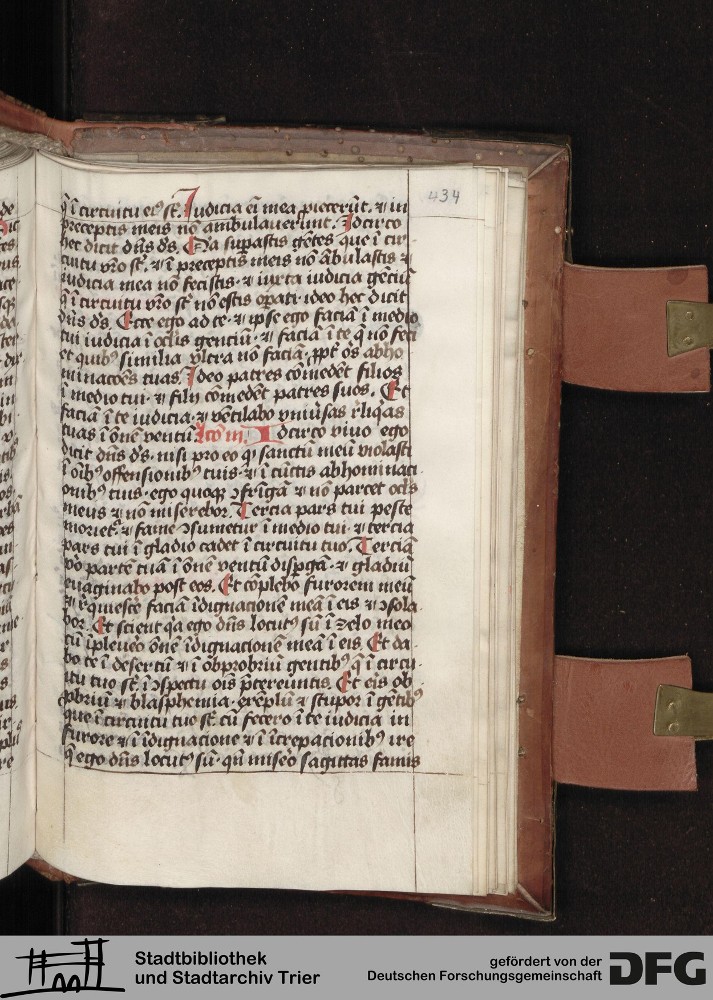 434
q̃ ĩ circuitu eiꝰ st̃. Iudicia eĩ mea ꝓiecerũt. ⁊ in
preceptis meis nõ ambulauerunt. Idcirco
hec dicit dñs ds̃. Q̃a supastis gẽtes que ĩ cir-
cuitu vr̃o st̃. ⁊ ĩ preceptis meis nõ ãbulastis ⁊
iudicia mea nõ fecistis. ⁊ iuxta iudicia gẽciũ
q̃ ĩ circuitu vr̃o st̃ nõ estis oꝑati. ideo hec dicit
dñs ds̃. Ecce ego ad te. ⁊ ip̃se ego faciã ĩ medio
tui iudicia ĩ oclis gentiũ. ⁊ faciã ĩ te q̃ nõ feci
et quibꝰ similia vltra nõ faciã. ꝓpt̃ õs abho
minacões tuas. Ideo patres cõmedẽt filios
ĩ medio tui. ⁊ filij cõmedẽt patres suos. Et
faciã ĩ te iudicia. ⁊ vẽtilabo vniũsas r̃liq̃as
tuas ĩ õnẽ ventũ. Lc̃o iij. Idcirco viuo ego
dicit dñs ds̃. nisi pro eo q̃ sanctũ meũ violasti
ĩ oĩbꝰ offensionibꝰ tuis. ⁊ ĩ cũctis abhominaci-
onibꝰ tuis. ego quoqꝫ ɔfrĩgã ⁊ nõ parcet ocls
meus ⁊ nõ miserebor. Tercia pars tui peste
moriet̃. ⁊ fame ɔsumetur ĩ medio tui. ⁊ tercia
pars tui ĩ gladio cadet ĩ circuitu tuo. Terciã
ṽo partẽ tuã ĩ õnẽ ventũ disꝑgã. ⁊ gladiũ
euaginabo post eos. Et cõplebo furorem meũ
⁊ r̃quiescẽ faciã ĩdignacionẽ meã ĩ eis ⁊ ɔsola-
bor. Et scient q̃a ego dñs locutꝰ sũ ĩ zelo meo
cũ ĩpleuero õnẽ ĩdignacionẽ meã ĩ eis. Et da-
bo te ĩ desertũ ⁊ ĩ obprobriũ gentibꝰ q̃ ĩ circu-
itu tuo st̃. ĩ ɔspectu oĩs p̃tereuntis. Et eis ob-
ꝓbriũ ⁊ blasphemia. exẽplũ ⁊ stupor ĩ gẽtibꝰ
que ĩ circuitu tuo st̃. cũ fecero ĩ te iudicia in
furore ⁊ ĩ ĩdignacione ⁊ ĩ ĩcrepacionibꝰ ire
q̃ ego dñs locutꝰ sũ. qñ misẽo sagittas famis
Stadtbibliothek
und Stadtarchiv Trier
gefördert von der
Deutschen Forschungsgemeinschaft
DFG